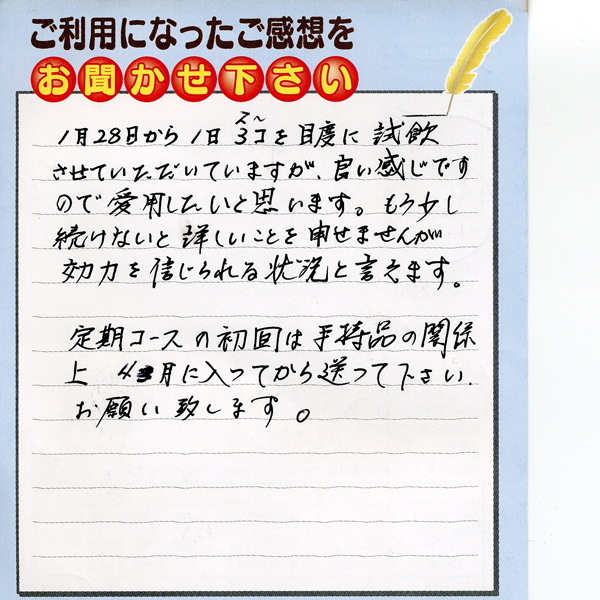 ご利用になったご感想を
お聞かせ下さい
2〜
1月28日から1日 3コを目度に 試飲
させていただいていますが、良い感じです
ので愛用したいと思います。もう少し
続けないと詳しいことを申せませんが
効力を信じられる状況と言えます。
定期コースの初回は手持品の関係
上 4月に入ってから送って下さい。
お願い致します。